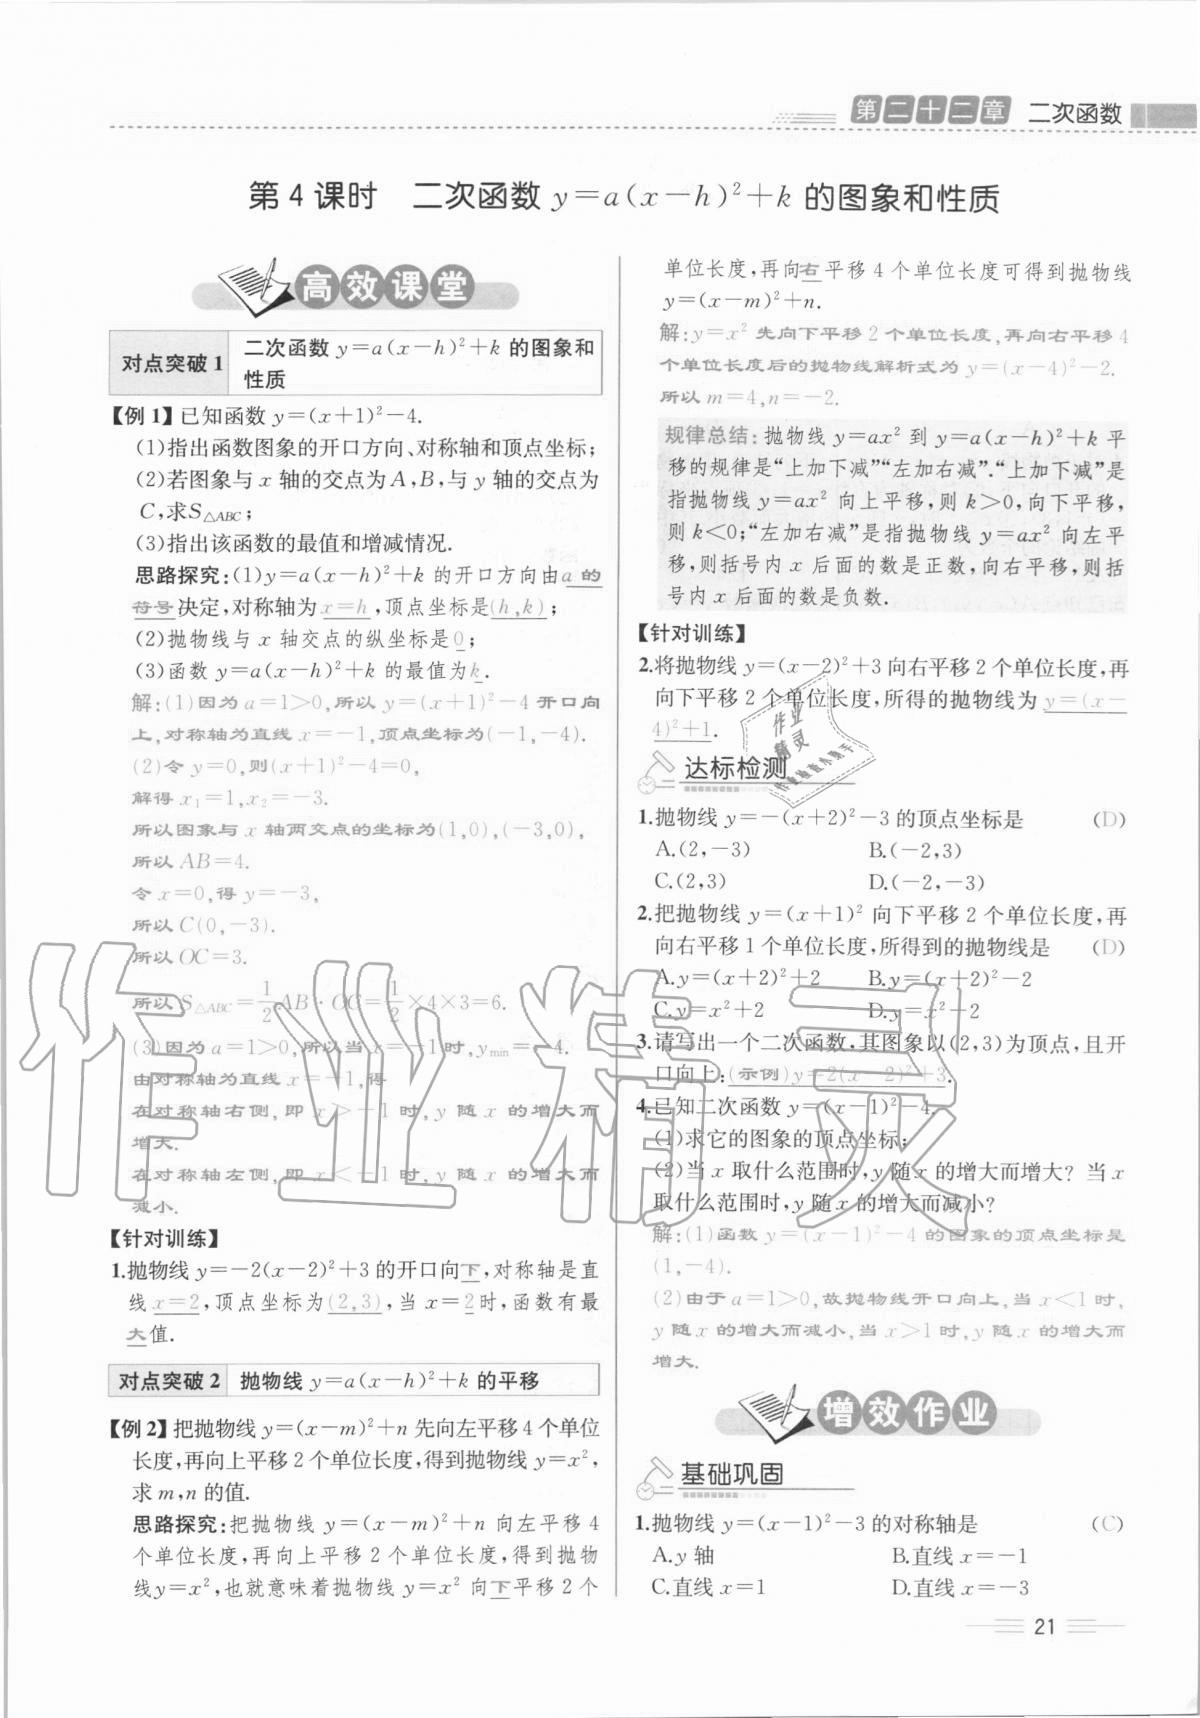 第二十二章 二次函数
第4课时 二次函数 y=a(x-h)²+k 的图象和性质
高效课堂
对点突破1 二次函数 y=a(x-h)²+k 的图象和
性质
【例1】已知函数 y=(x+1)²-4.
(1)指出函数图象的开口方向、对称轴和顶点坐标;
(2)若图象与 x 轴的交点为 A,B,与 y 轴的交点为
C,求S△ABC;
(3)指出该函数的最值和增减情况.
思路探究:(1)y=a(x-h)²+k 的开口方向由a 的
符号决定,对称轴为 x=h ,顶点坐标是(h,k);
(2)抛物线与 x 轴交点的纵坐标是0;
(3)函数 y=a(x-h)²+k 的最值为k.
解:(1)因为 a=1>0,所以 y=(x+1)²-4 开口向
上,对称轴为直线 x=-1,顶点坐标为(-1,-4).
(2)令 y=0,则(x+1)²-4=0,
解得 x₁=1,x₂=-3.
所以图象与 x 轴两交点的坐标为(1,0),(-3,0),
所以 AB=4.
令 x=0,得 y=-3,
所以 C(0,-3).
所以 OC=3.
所以 S△ABC=1/2 AB·OC=1/2×4×3=6.
(3)因为 a=1>0,所以当 x=-1 时,ymin=-4.
由对称轴为直线 x=-1,得
在对称轴右侧,即 x>-1 时,y 随 x 的增大而
增大.
在对称轴左侧,即 x<-1 时,y 随 x 的增大而
减小.
【针对训练】
1.抛物线 y=-2(x-2)²+3 的开口向下,对称轴是直
线 x=2,顶点坐标为(2,3),当 x=2时,函数有最
大值.
对点突破2 抛物线 y=a(x-h)²+k 的平移
【例2】把抛物线 y=(x-m)²+n 先向左平移 4 个单位
长度,再向上平移 2 个单位长度,得到抛物线 y=x²,
求 m,n 的值.
思路探究:把抛物线 y=(x-m)²+n 向左平移 4
个单位长度,再向上平移 2 个单位长度,得到抛物
线y=x²,也就意味着抛物线 y=x² 向下平移 2 个
单位长度,再向右平移 4 个单位长度可得到抛物线
y=(x-m)²+n.
解:y=x² 先向下平移 2 个单位长度,再向右平移 4
个单位长度后的抛物线解析式为 y=(x-4)²-2.
所以 m=4,n=-2.
规律总结:抛物线 y=ax² 到 y=a(x-h)²+k 平
移的规律是“上加下减”“左加右减”.“上加下减”是
指抛物线 y=ax² 向上平移,则 k>0,向下平移,
则 k<0;“左加右减”是指抛物线 y=ax² 向左平
移,则括号内 x 后面的数是正数,向右平移,则括
号内 x 后面的数是负数.
【针对训练】
2.将抛物线 y=(x-2)²+3 向右平移 2 个单位长度,再
向下平移 2 个单位长度,所得的抛物线为 y=(x-
4)²+1.
达标检测
1.抛物线 y=-(x+2)²-3 的顶点坐标是 (D)
A.(2,-3) B.(-2,3)
C.(2,3) D.(-2,-3)
2.把抛物线 y=(x+1)² 向下平移 2 个单位长度,再
向右平移 1 个单位长度,所得到的抛物线是 (D)
A.y=(x+2)²+2 B.y=(x+2)²-2
C.y=x²+2 D.y=x²-2
3.请写出一个二次函数,其图象以(2,3)为顶点,且开
口向上:(示例)y=2(x-2)²+3.
4.已知二次函数 y=(x-1)²-4.
(1)求它的图象的顶点坐标;
(2)当 x 取什么范围时,y 随 x 的增大而增大？当 x
取什么范围时,y 随 x 的增大而减小?
解:(1)函数 y=(x-1)²-4 的图象的顶点坐标是
(1,-4).
(2)由于 a=1>0,故抛物线开口向上,当 x<1 时,
y 随 x 的增大而减小,当 x>1 时,y 随 x 的增大而
增大.
增效作业
基础巩固
1.抛物线 y=(x-1)²-3 的对称轴是 (C)
A.y 轴 B.直线 x=-1
C.直线 x=1 D.直线 x=-3
21
作业精灵
作业
精灵
作业检查小助手